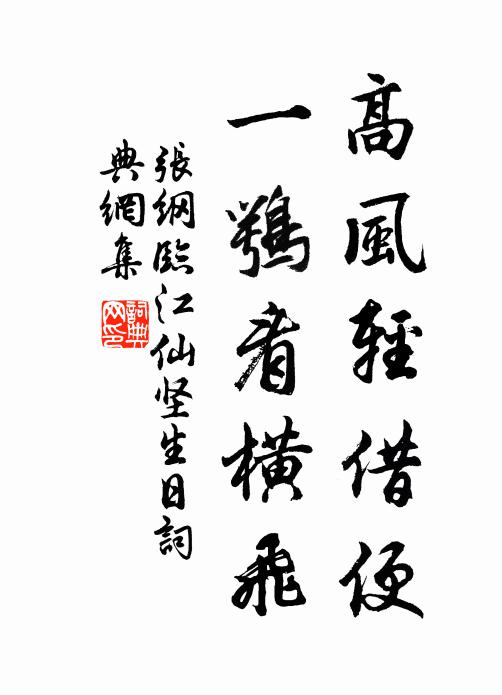 高風輕借便
一鶚看橫飛
張綱臨江仙坚生日詞
典網集
詞典网印